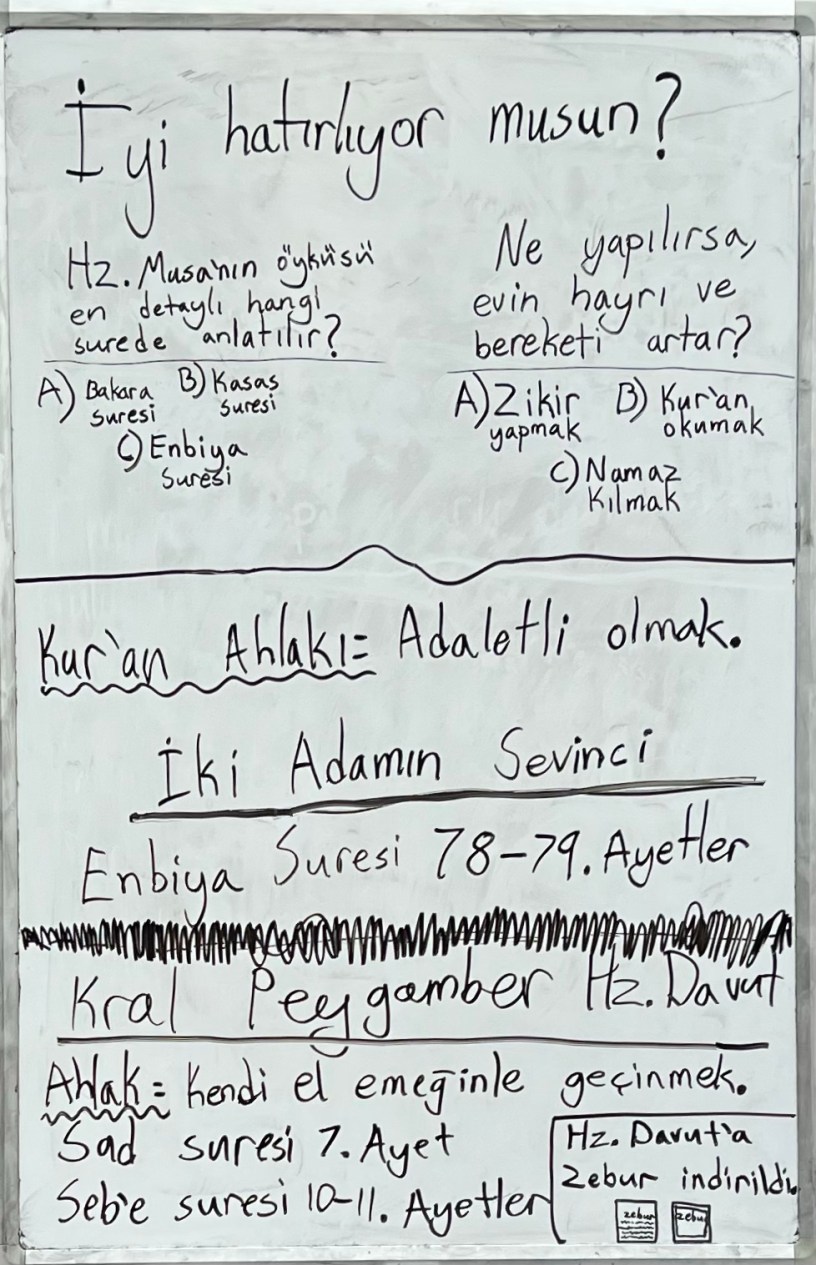 İyi hatırlıyor musun?
Hz. Musa'nın öyküsü
en detaylı hangi
surede anlatılır?
A) Bakara suresi B) Kasas suresi
C) Enbiya Suresi
Ne yapılırsa,
evin hayrı ve
bereketi artar?
A) Zikir yapmak B) Kur'an okumak
C) Namaz Kılmak
Kur'an Ahlakı= Adaletli olmak.
İki Adamın Sevinci
Enbiya Suresi 78-79. Ayetler
Kral Peygamber Hz. Davut
Ahlak= Kendi el emeğinle geçinmek.
Sad suresi 7. Ayet
Seb'e suresi 10-11. Ayetler
Hz. Davut'a
Zebur indirildi.
zebur zebur